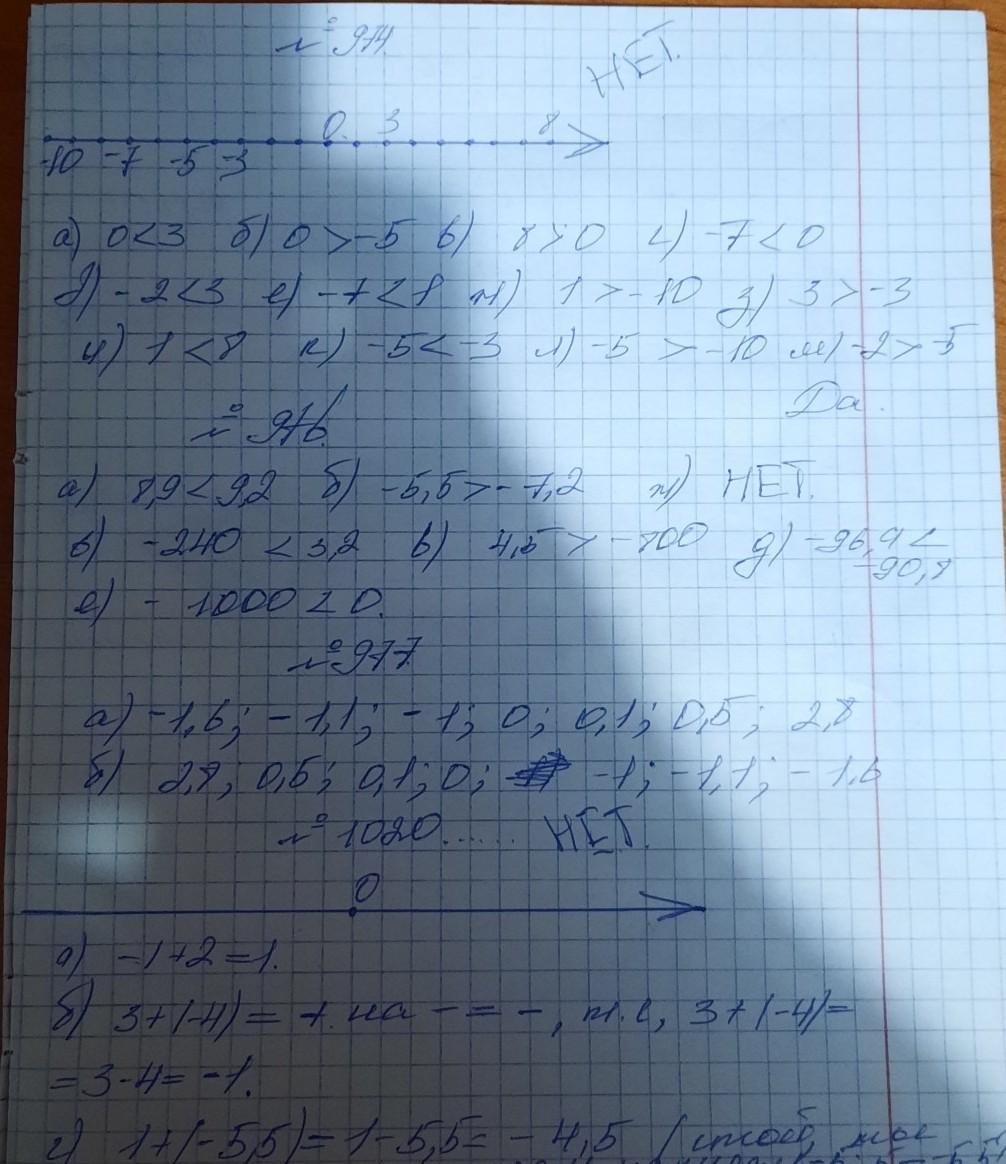 № 974
НЕТ.
0 3 8
-10 -7 -5 -3
а) 0<3 б) 0 >-5 в) 8>0 г) -7<0
д) -2<3 е) -7<8 ж) 1 >-10 з) 3 >-3
и) 1 <8 к) -5<-3 л) -5 > -10 м) -2>-5
Да.
№ 976.
а) 8,9<9,2 б) -5,5>-7,2 ж) НЕТ.
в) -240 <3,2 в) 4,5 > -800 д) -96,9<
-90,8
е) - 1000 < 0.
№ 977.
а) -1,6; -1,1; -1; 0; 0,1; 0,5; 2,8
б) 2,8; 0,5; 0,1; 0; -1; -1,1; -1,6
№ 1020...... НЕТ.
0
а) -1+2=1.
б) 3+(-4)= + на - = -, т.е, 3+(-4)=
=3-4= -1.
г) 1+(-5,5)=1-5,5= -4,5